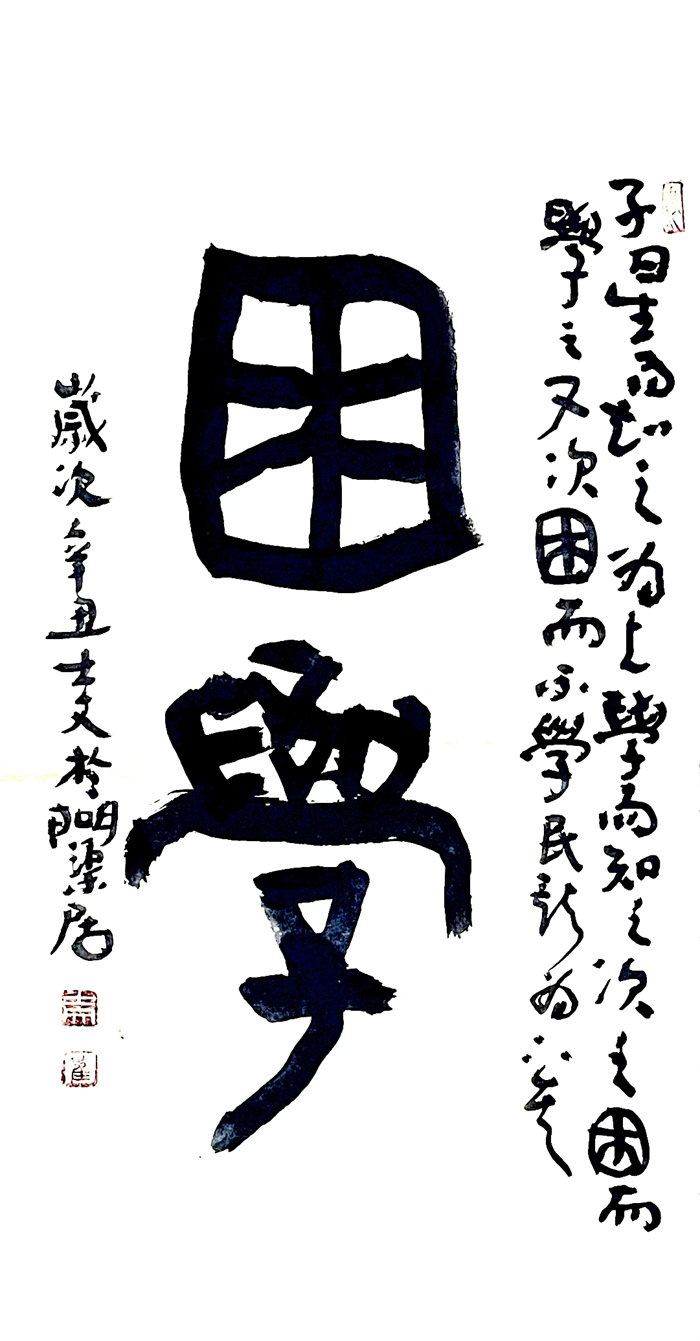 子曰生而知之為上學而知之次之困而
學之又次困而不學民斯為下矣
困學
歲次辛丑士文於朙渠居